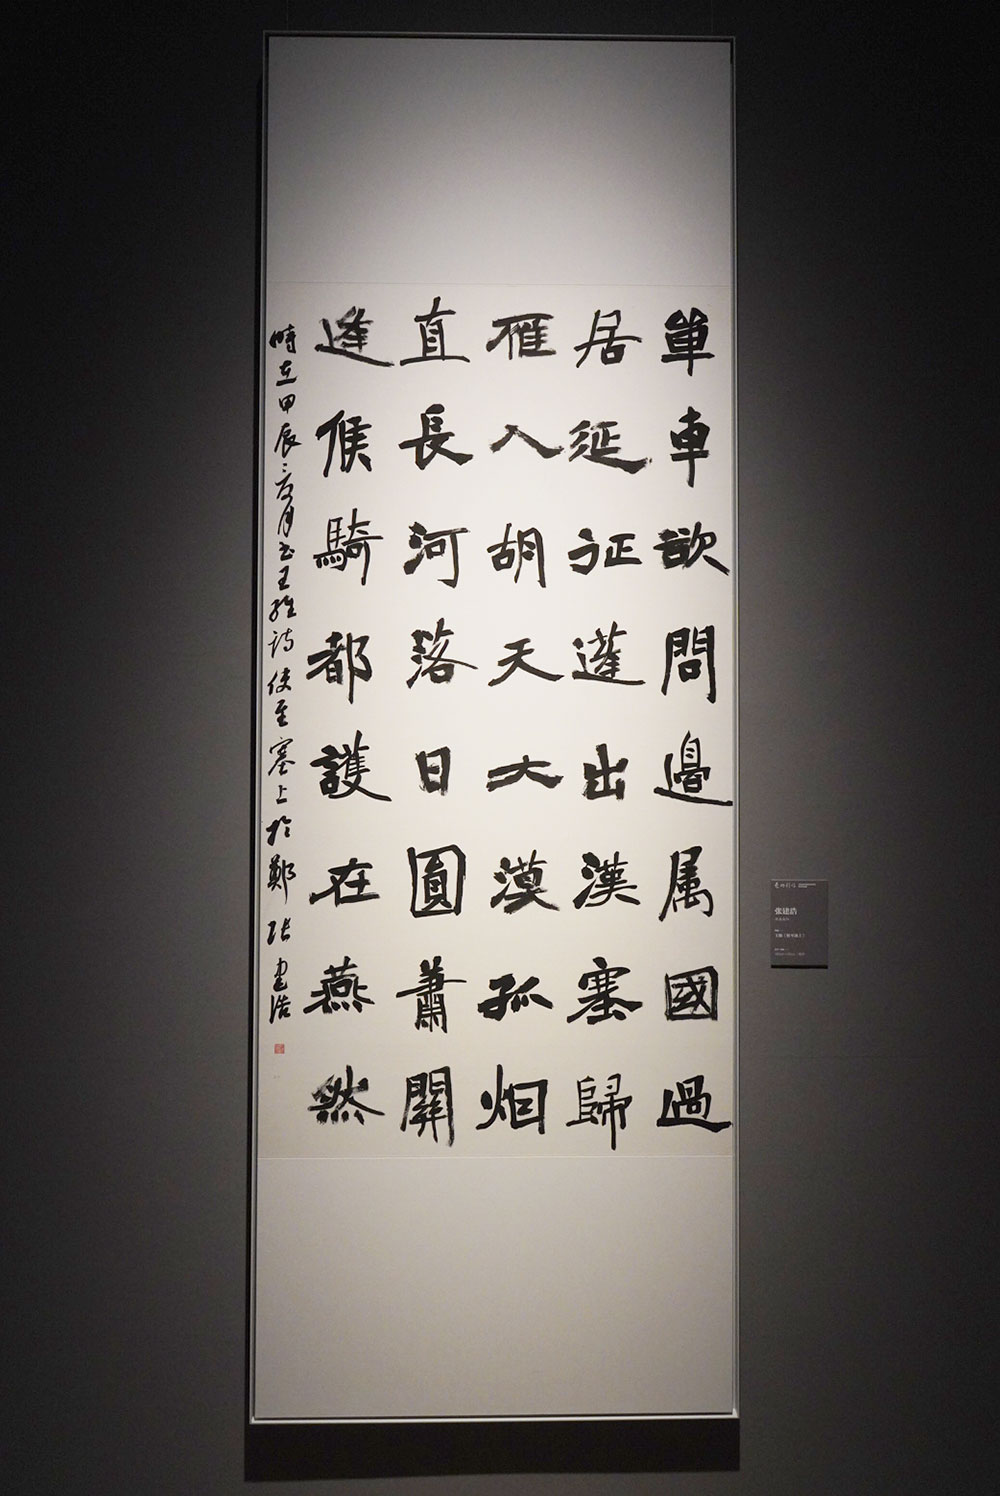 單車欲問邊属國過
居延征蓬出漢塞歸
雁入胡天大漠孤烟
直長河落日圓蕭關
逢候騎都護在燕然
時在甲辰三月書王維詩使至塞上於鄭張建浩
张建浩